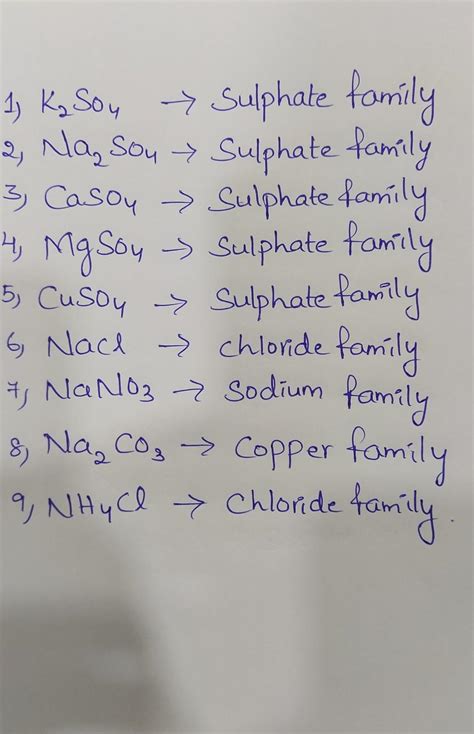 1) K₂SO₄ → Sulphate family
2) Na₂SO₄ → Sulphate family
3) CaSO₄ → Sulphate family
4) MgSO₄ → Sulphate family
5) CuSO₄ → Sulphate family
6) NaCl → chloride family
7) NaNO₃ → Sodium family
8) Na₂CO₃ → Copper family
9) NH₄Cl → Chloride family.